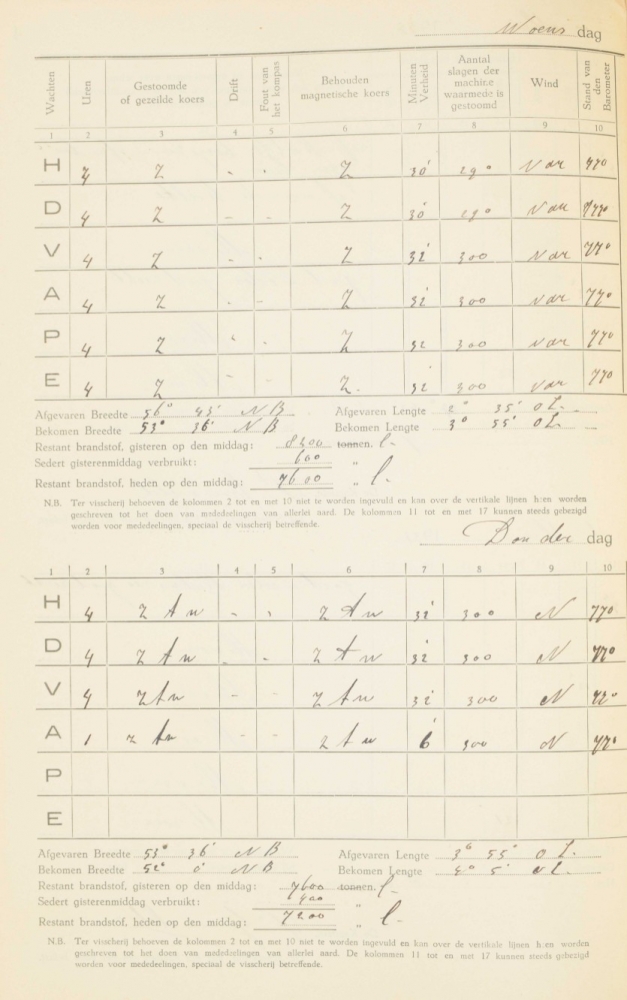 Woens dag
Wachten Uren Gestoomde of gezeilde koers Drift Fout van het kompas Behouden magnetische koers Minuten Verheid Aantal slagen der machine waarmede is gestoomd Wind Stand van den Barometer
1 2 3 4 5 6 7 8 9 10
H 4 Z - - Z 30' 290 Var 770
D 4 Z - - Z 30' 290 Var 770
V 4 Z - - Z 32' 300 Var 770
A 4 Z - - Z 32' 300 Var 770
P 4 Z - - Z 32 300 Var 770
E 4 Z - - Z. 32' 300 Var 770
Afgevaren Breedte 56° 45' NB Afgevaren Lengte 2° 35' OL.
Bekomen Breedte 53° 36' NB Bekomen Lengte 3° 55' OL.
Restant brandstof, gisteren op den middag: 8200 tonnen. l.
Sedert gisterenmiddag verbruikt: 600 "
Restant brandstof, heden op den middag: 7600 " l.
N.B. Ter visscherij behoeven de kolommen 2 tot en met 10 niet te worden ingevuld en kan over de vertikale lijnen heen worden
geschreven tot het doen van mededeelingen van allerlei aard. De kolommen 11 tot en met 17 kunnen steeds gebezigd
worden voor mededeelingen, speciaal de visscherij betreffende.
Donder dag
1 2 3 4 5 6 7 8 9 10
H 4 Z t W - - Z t W 32' 300 N 770
D 4 Z t W - - Z t W 32' 300 N 770
V 4 Z t W - - Z t W 32' 300 N 770
A 1 Z t W - - Z t W 6' 300 N 770
P
E
Afgevaren Breedte 53° 36' NB Afgevaren Lengte 3° 55' OL.
Bekomen Breedte 52° 0' NB Bekomen Lengte 4° 5' OL.
Restant brandstof, gisteren op den middag: 7600 tonnen. l.
Sedert gisterenmiddag verbruikt: 400 "
Restant brandstof, heden op den middag: 7200 " l.
N.B. Ter visscherij behoeven de kolommen 2 tot en met 10 niet te worden ingevuld en kan over de vertikale lijnen heen worden
geschreven tot het doen van mededeelingen van allerlei aard. De kolommen 11 tot en met 17 kunnen steeds gebezigd
worden voor mededeelingen, speciaal de visscherij betreffende.